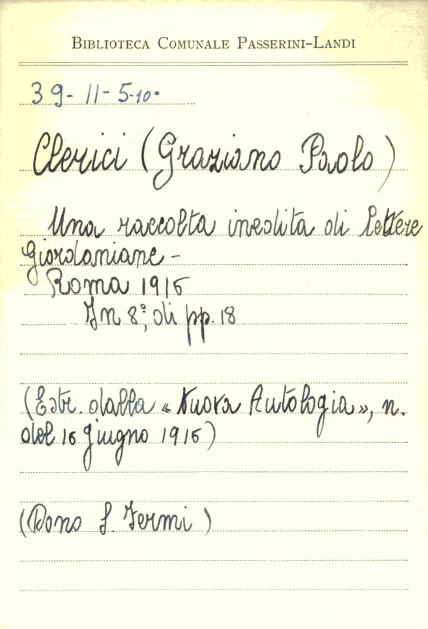 BIBLIOTECA COMUNALE PASSERINI-LANDI
39-11-5-10.
Clerici (Graziano Paolo)
Una raccolta inedita di lettere
giordaniane -
Roma 1915
In 8°, di pp. 18
(Estr. dalla « Nuova Antologia », n.
del 16 giugno 1915)
(Dono S. Fermi)